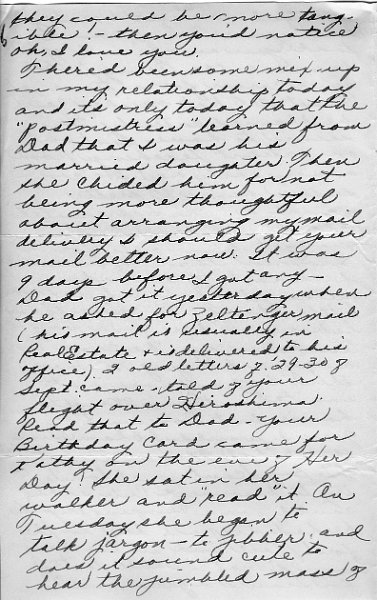 they could be more tang-
ible! - then you'd notice
oh, I love you.
There'd been some mix-up
in my relationship today
and its only today that the
"Postmistress" learned from
Dad that I was his
married daughter. Then
she chided him for not
being more thoughtful
about arranging my mail
delivery & should get your
mail better now. It was
9 days before I got any -
Dad got it yesterday when
he asked for Zeltanger mail
(his mail is usually in
Real Estate & is delivered to his
office). 2 old letters of 29-30 of
Sept. came - told of your
flight over Hiroshima.
Read that to Dad - Your
Birthday Card came for
Kathy on the eve of Her
Day! She sat in her
walker and "read" it. On
Tuesday she began to
talk jargon - to jibber and
does it sound cute to
hear the jumbled mass of